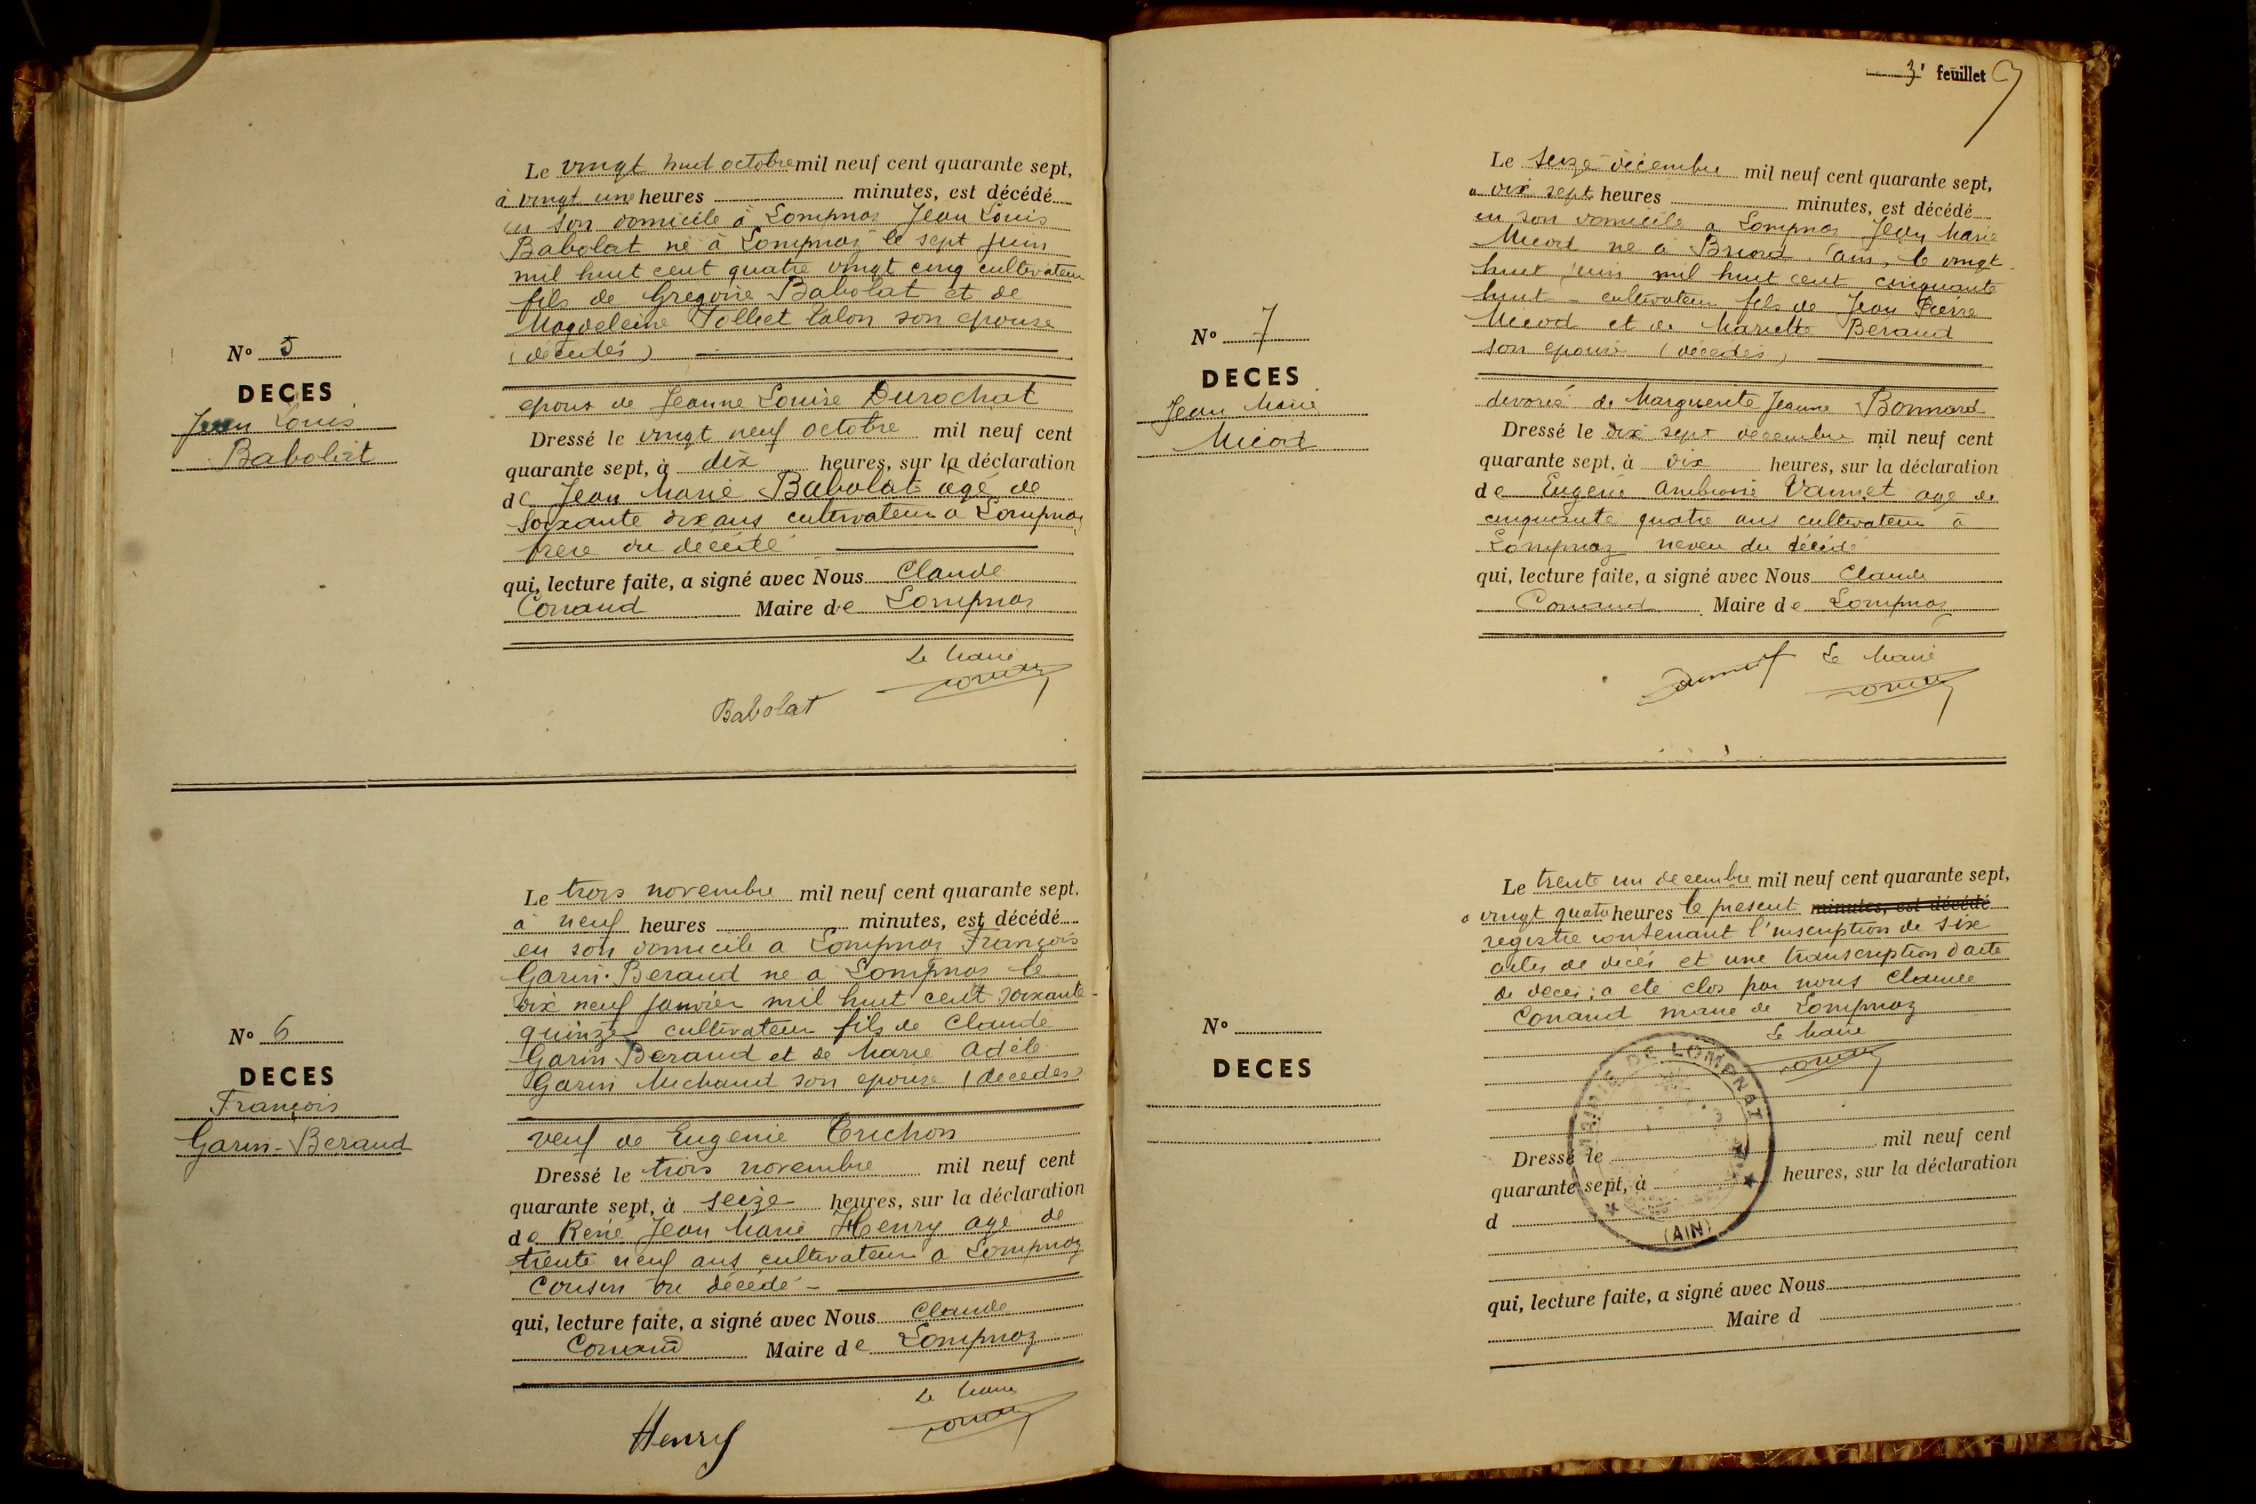 Le vingt huit octobre mil neuf cent quarante sept,
à vingt une heures minutes, est décédé
en son domicile à Lompnas Jean Louis
Babolat né à Lompnaz le sept juin
mil huit cent quatre vingt cinq cultivateur
fils de Gregoire Babolat et de
Magdeleine Tolliet Lalon son epouse
(décédés)
N° 5
DECES
Jean Louis
Babolat
epoux de Jeanne Louise Durochat
Dressé le vingt neuf octobre mil neuf cent
quarante sept, à dix heures, sur la déclaration
de Jean Marie Babolat agé de
soixante dix ans cultivateur a Lompnaz
frere du decédé
qui, lecture faite, a signé avec Nous Claude
Conand Maire de Lompnas
Le Maire
Babolat
Le trois novembre mil neuf cent quarante sept,
à neuf heures minutes, est décédé
en son domicile a Lompnaz François
Garin-Beraud né a Lompnas le
dix neuf janvier mil huit cent soixante
quinze cultivateur fils de Claude
Garin Beraud et de Marie Adèle
Garin Michaud son epouse (décédés)
N° 6
DECES
François
Garin-Beraud
veuf de Eugenie Trichon
Dressé le trois novembre mil neuf cent
quarante sept, à seize heures, sur la déclaration
de René Jean Marie Henry agé de
trente neuf ans cultivateur a Lompnaz
Cousin du décédé
qui, lecture faite, a signé avec Nous Claude
Conand Maire de Lompnaz
Le Maire
Henry
3e feuillet
Le seize décembre mil neuf cent quarante sept,
a dix sept heures minutes, est décédé
en son domicile a Lompnas Jean Marie
Micod né à Briord, ain, le vingt
huit juin mil huit cent cinquante
huit - cultivateur fils de Jean Pierre
Micod et de Mariette Beraud
son epouse (décédés)
N° 7
DECES
Jean Marie
Micod
divorcé de Marguerite Jeanne Bonnard
Dressé le dix sept decembre mil neuf cent
quarante sept, à dix heures, sur la déclaration
de Eugène Ambroise Vannet age de
cinquante quatre ans cultivateur à
Lompnaz neveu du décédé
qui, lecture faite, a signé avec Nous Claude
Conand Maire de Lompnaz
Le Maire
Le trente un decembre mil neuf cent quarante sept,
a vingt quatre heures le present minutes, est décédé
registre contenant l'inscription de six
actes de décés et une transcription d'acte
de deces, a eté clos par nous Claude
Conand maire de Lompnaz
Le Maire
MAIRIE DE LOMPNAT
(AIN)
N°
DECES
Dressé le mil neuf cent
quarante sept, à heures, sur la déclaration
d
qui, lecture faite, a signé avec Nous
Maire d